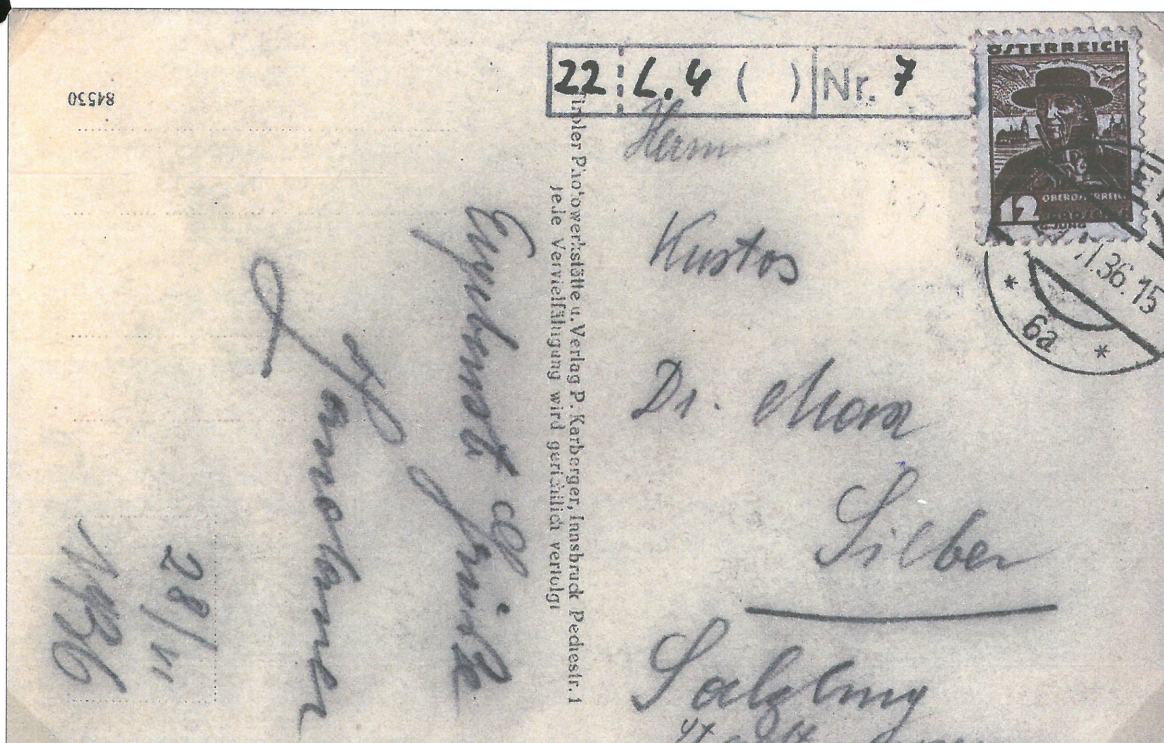 84530
22 L. 4 ( ) Nr. 7
ÖSTERREICH
12
36.15
* 6a *
Herrn
Kustos
Dr. Max
Silber
Salzburg
Tiroler Photowerkstätte u. Verlag P. Karberger, Innsbruck Pechestr. 1
Jede Vervielfältigung wird gerichtlich verfolgt
Ergebenst Grüße
28/VI
1936